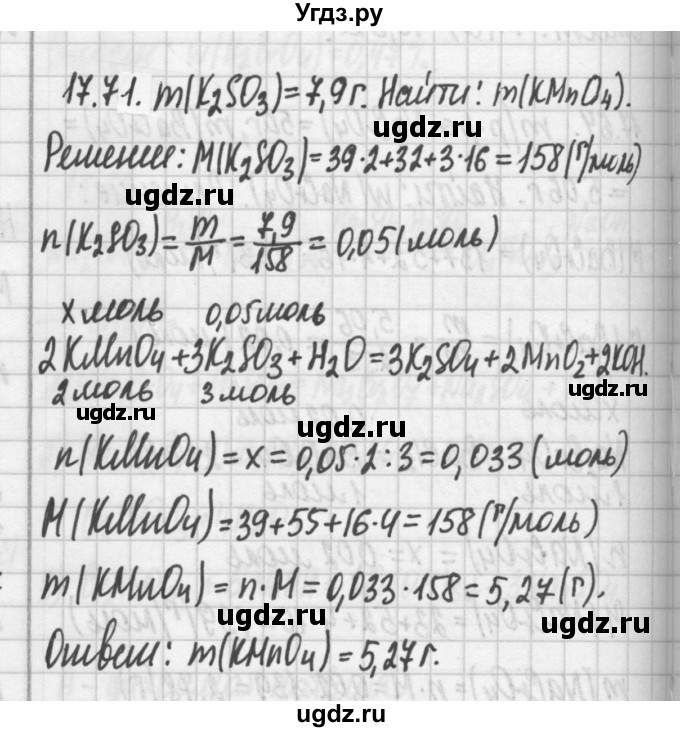 Угдз.ру
17.71. m(K₂SO₃)=7,9г. Найти: m(KMnO₄).
gdz.ru
Решение: M(K₂SO₃)=39·2+32+3·16=158(г/моль)
udgz.ru
n(K₂SO₃)=m/M=7,9/158=0,05(моль)
x моль 0,05моль
2KMnO₄+3K₂SO₃+H₂O=3K₂SO₄+2MnO₂+2KOH.
2 моль 3 моль
n(KMnO₄)=x=0,05·2:3=0,033(моль)
M(KMnO₄)=39+55+16·4=158(г/моль)
m(KMnO₄)=n·M=0,033·158=5,27(г).
Ответ: m(KMnO₄)=5,27г.
udgz.ru